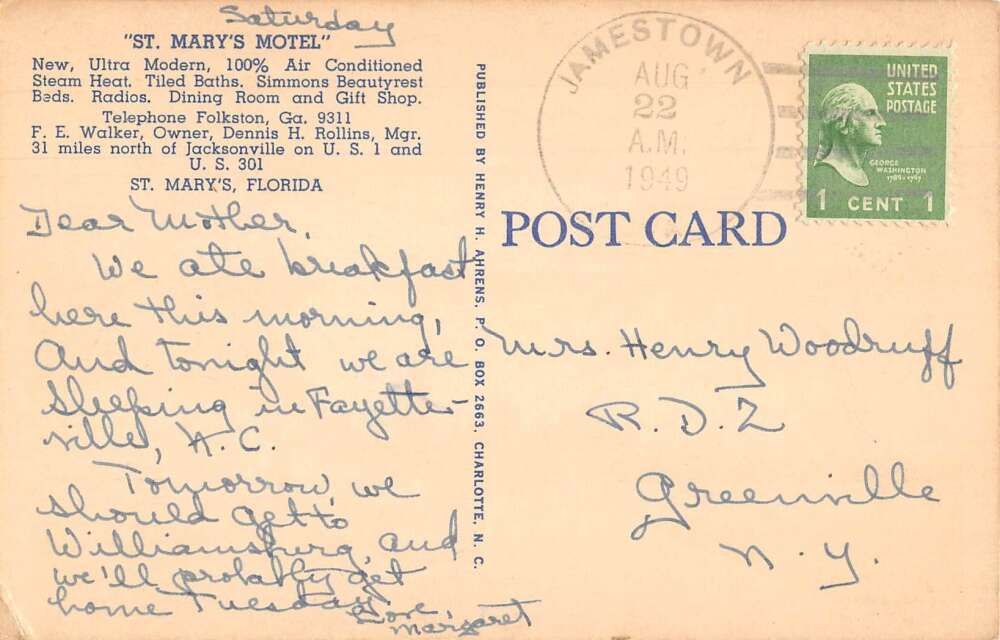 Saturday
"ST. MARY'S MOTEL"
New, Ultra Modern, 100% Air Conditioned
Steam Heat. Tiled Baths. Simmons Beautyrest
Beds. Radios. Dining Room and Gift Shop.
Telephone Folkston, Ga. 9311
F. E. Walker, Owner, Dennis H. Rollins, Mgr.
31 miles north of Jacksonville on U. S. 1 and
U. S. 301
ST. MARY'S, FLORIDA
Dear Mother,
We ate breakfast
here this morning,
And tonight we are
sleeping in Fayette-
ville, N.C.
Tomorrow we
should get to
Williamsburg, and
we'll probably get
home Tuesday.
Love,
Margaret
PUBLISHED BY HENRY H. AHRENS, P. O. BOX 2663, CHARLOTTE, N. C.
JAMESTOWN
AUG
22
A.M.
1949
UNITED
STATES
POSTAGE
GEORGE
WASHINGTON
1789-1797
1 CENT 1
POST CARD
Mrs. Henry Woodruff
R.D.2
Greenville
N.Y.